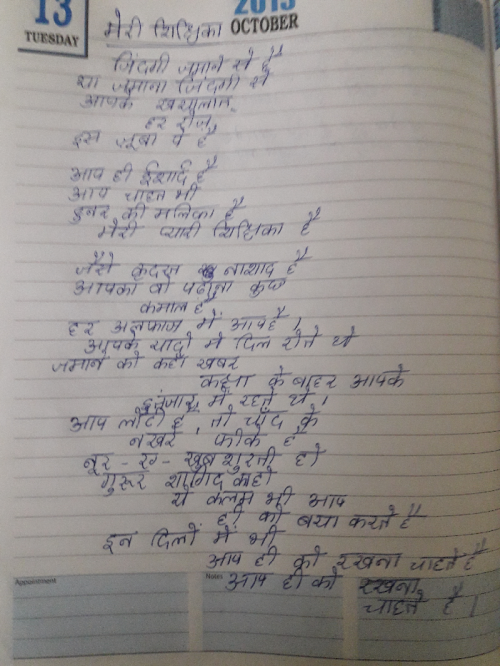 13
TUESDAY
2015
OCTOBER
मेरी शिक्षिका
जिंदगी जमाने से है
या जमाना जिंदगी से
आपके खयालात
हर रोज
इस जुबा पे है
आप ही ईशाद है
आप चाहत भी
हुनर की मलिका है
मेरी प्यारी शिक्षिका है
जैसे कुदरत नाशाद है
आपका वो पढाना कुछ
कमाल है
हर अलफाज में आप है।
आपके यादो में दिल रोते थे
जमाने को कहा खबर
कक्षा के बाहर आपके
इंतजार में रहते थे।
आप लौटी है, तो चाँद के
नखरे फीके है
नूर - रंग - खुबशुरती हो
गुरूर शागिर्द कहो
ये कलम भी आप
ही को बया करते है
इन दिलों में भी
आप ही को रखना चाहते है
आप ही को रखना
चाहते है।
Appointment
Notes